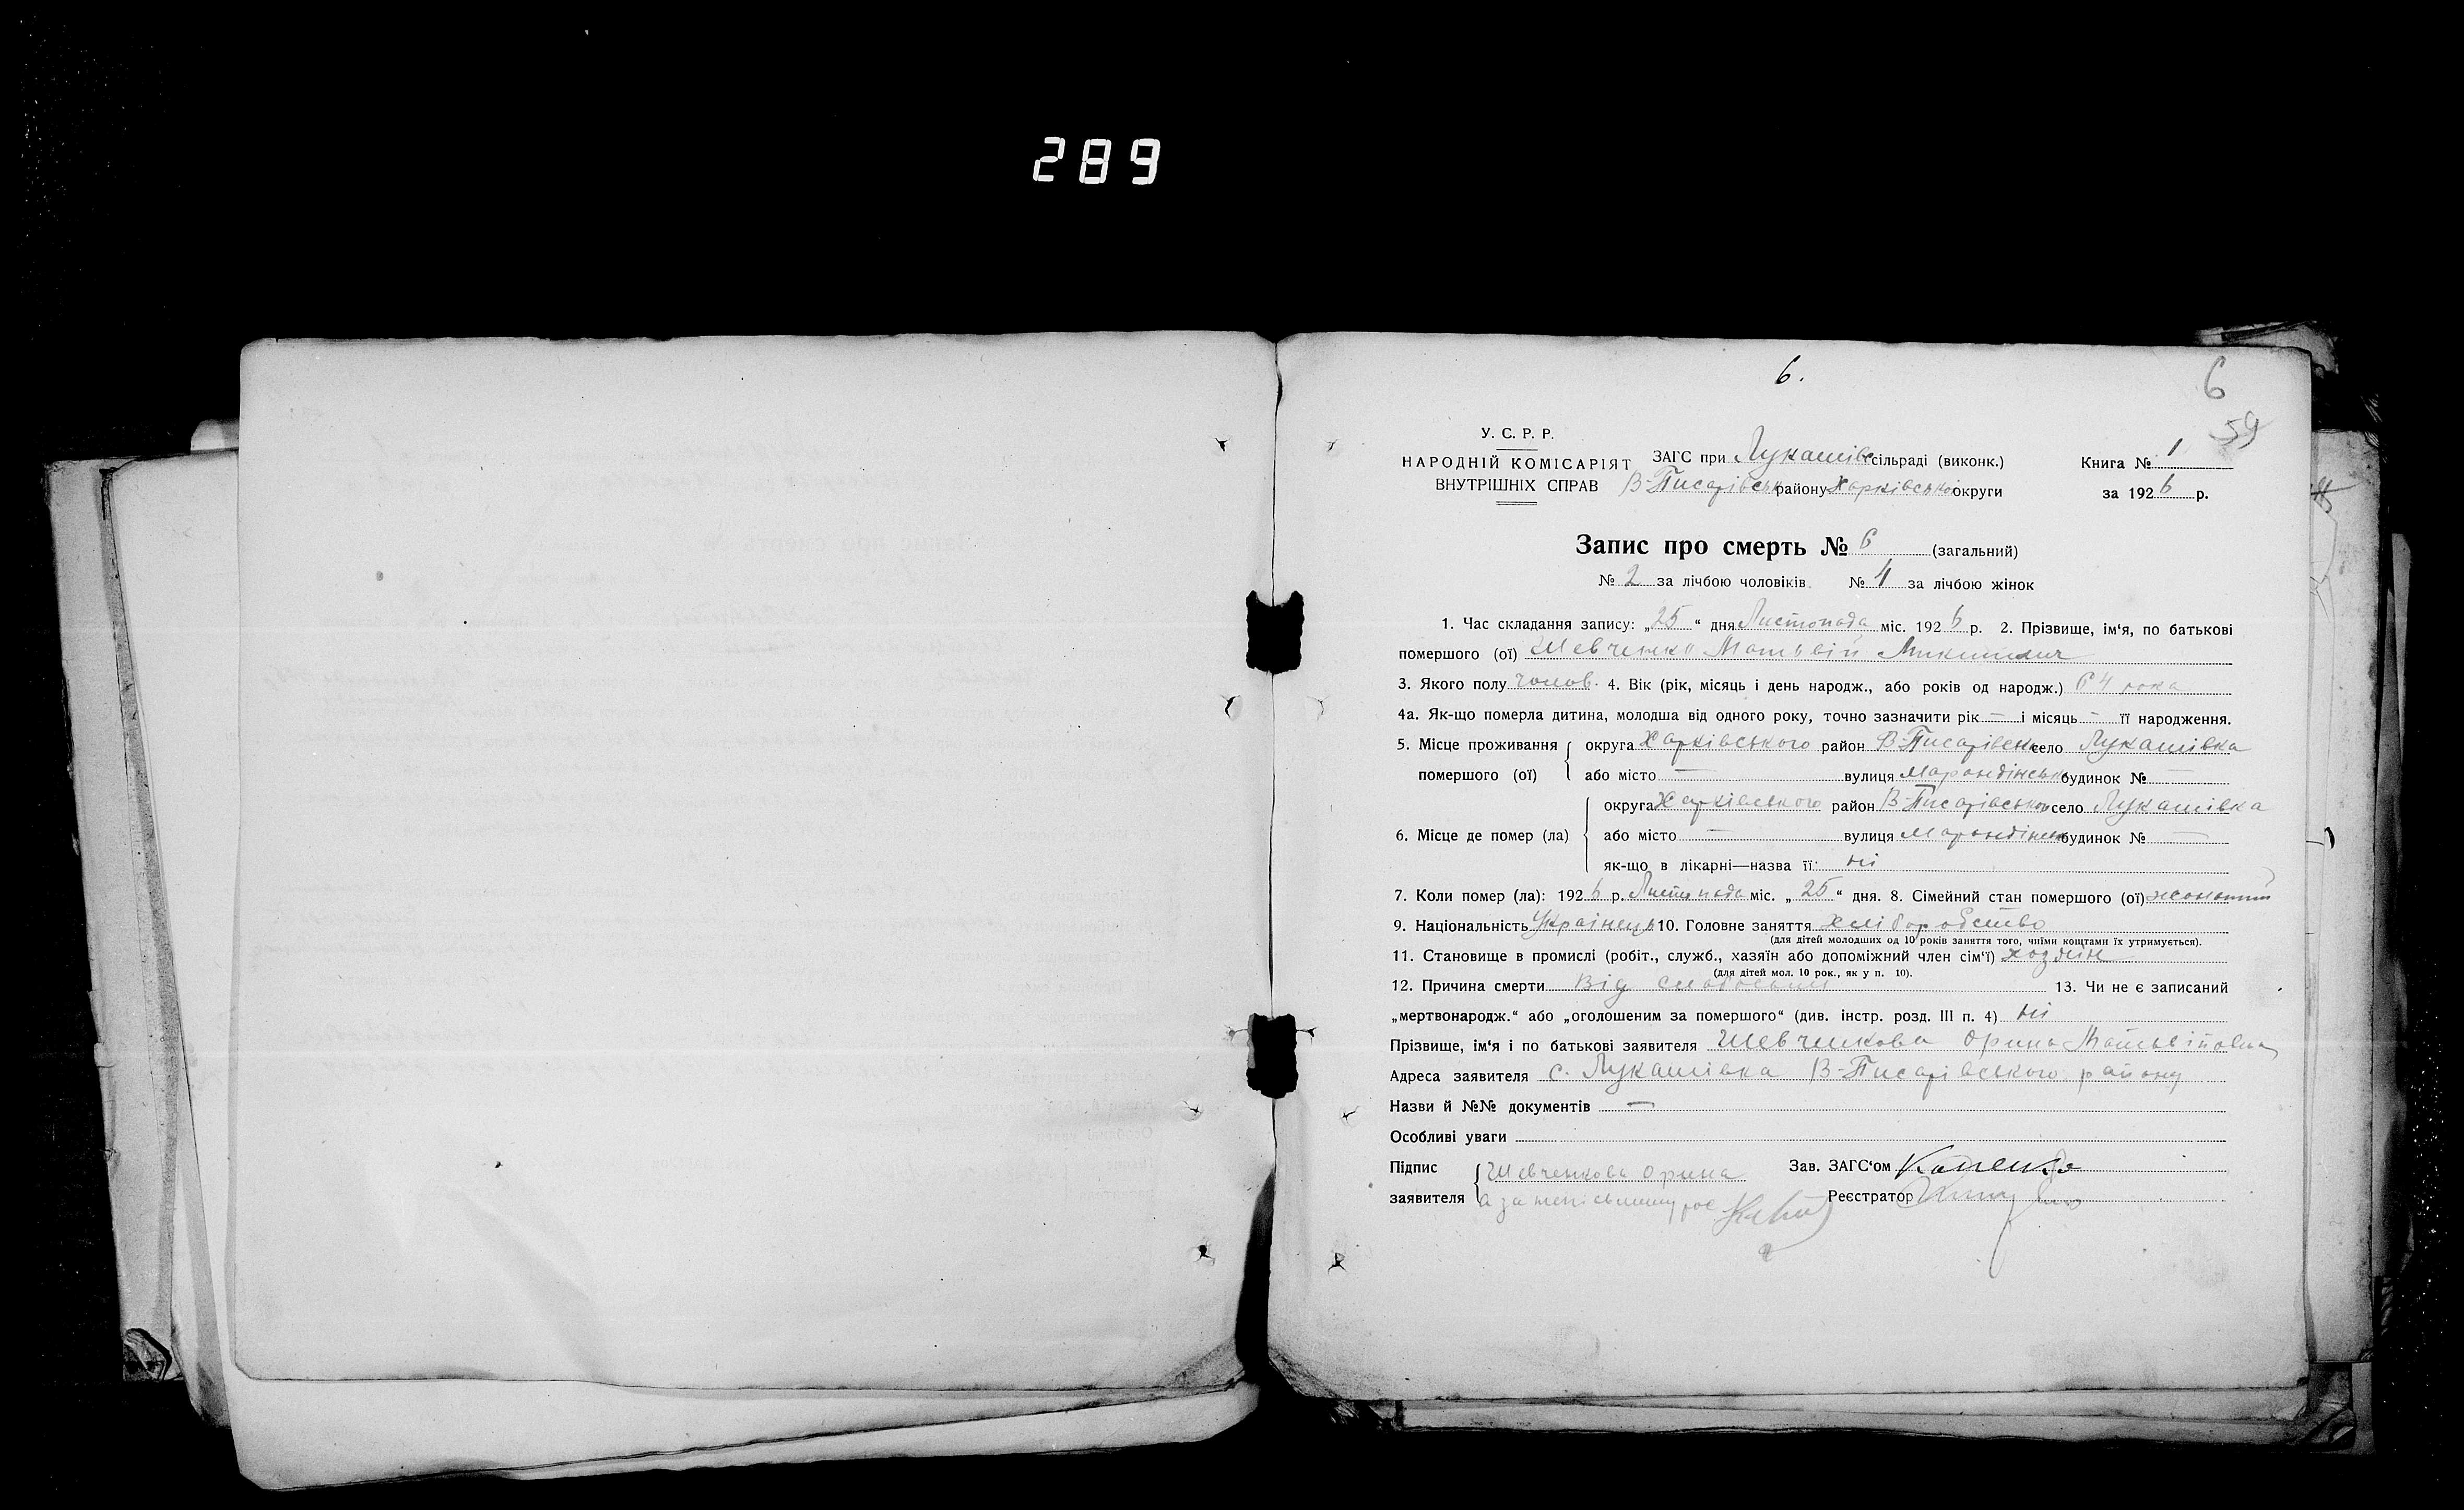 289
6.
6
59
У. С. Р. Р.
НАРОДНІЙ КОМІСАРІЯТ
ВНУТРІШНІХ СПРАВ
ЗАГС при Лукашівс сільраді (виконк.)
В-Писарівськ району Харківської округи
Книга № 1
за 1926 р.
Запис про смерть № 6 (загальний)
№ 2 за лічбою чоловіків № 4 за лічбою жінок
1. Час складання запису: „25“ дня Листопада міс. 1926 р. 2. Прізвище, ім‘я, по батькові
помершого (ої) Шевченко Матьвій Микитович
3. Якого полу чолов. 4. Вік (рік, місяць і день народж., або років од народж.) 64 рока
4а. Як-що померла дитина, молодша від одного року, точно зазначити рік — і місяць — її народження.
5. Місце проживання помершого (ої) округа Харківського район В-Писарівськ село Лукашівка
або місто — вулиця будинок № —
6. Місце де помер (ла) округа Харківського район В-Писарівського село Лукашівка
або місто — вулиця будинок № —
як-що в лікарні—назва її: ні
7. Коли помер (ла): 1926 р. Листопада міс. „25“ дня. 8. Сімейний стан помершого (ої) жонатий
9. Національність Українець 10. Головне заняття хліборобство
(для дітей молодших од 10 років заняття того, чиїми коштами їх утримується).
11. Становище в промислі (робіт., служб., хазяїн або допоміжний член сім‘ї) хозяїн
(для дітей мол. 10 рок., як у п. 10).
12. Причина смерти Від слабости 13. Чи не є записаний
„мертвонародж.“ або „оголошеним за помершого“ (див. інстр. розд. III п. 4) ні
Прізвище, ім‘я і по батькові заявителя Шевченкова Орина Матьвійовна
Адреса заявителя с. Лукашівка В-Писарівського району
Назви й №№ документів —
Особливі уваги
Підпис заявителя Шевченкова Орина
Зав. ЗАГС‘ом
Реєстратор